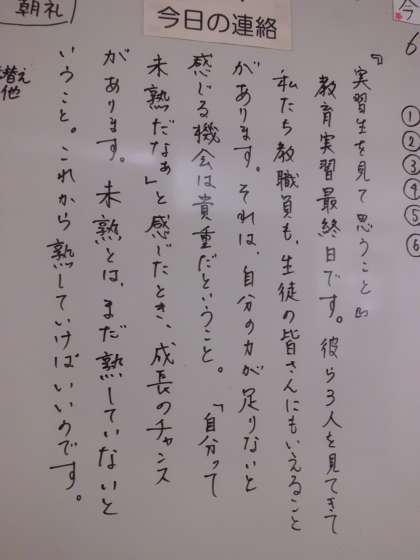 朝礼
今日の連絡
今
6
①
②
③
④
⑤
⑥
『実習生を見て思うこと』
教育実習最終日です。彼ら3人を見てきて
私たち教職員も、生徒の皆さんにもいえること
があります。それは、自分の力が足りないと
感じる機会は貴重だということ。「自分って
未熟だなぁ」と感じたとき、成長のチャンス
があります。未熟とは、まだ熟していないと
いうこと。これから熟していけばいいのです。
替え
他